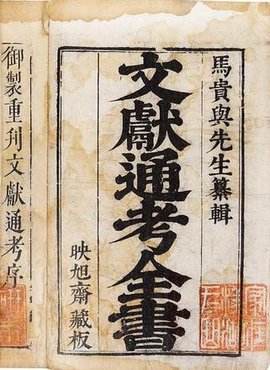 馬貴與先生纂輯
文獻通考全書
映旭齋藏板
御製重刊文獻通考序